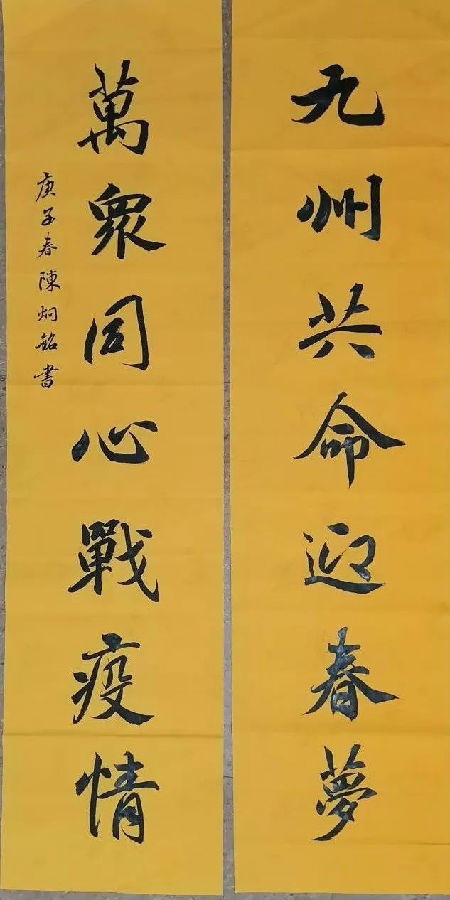 九州共命迎春夢
萬眾同心戰疫情
庚子春陳炯銘書